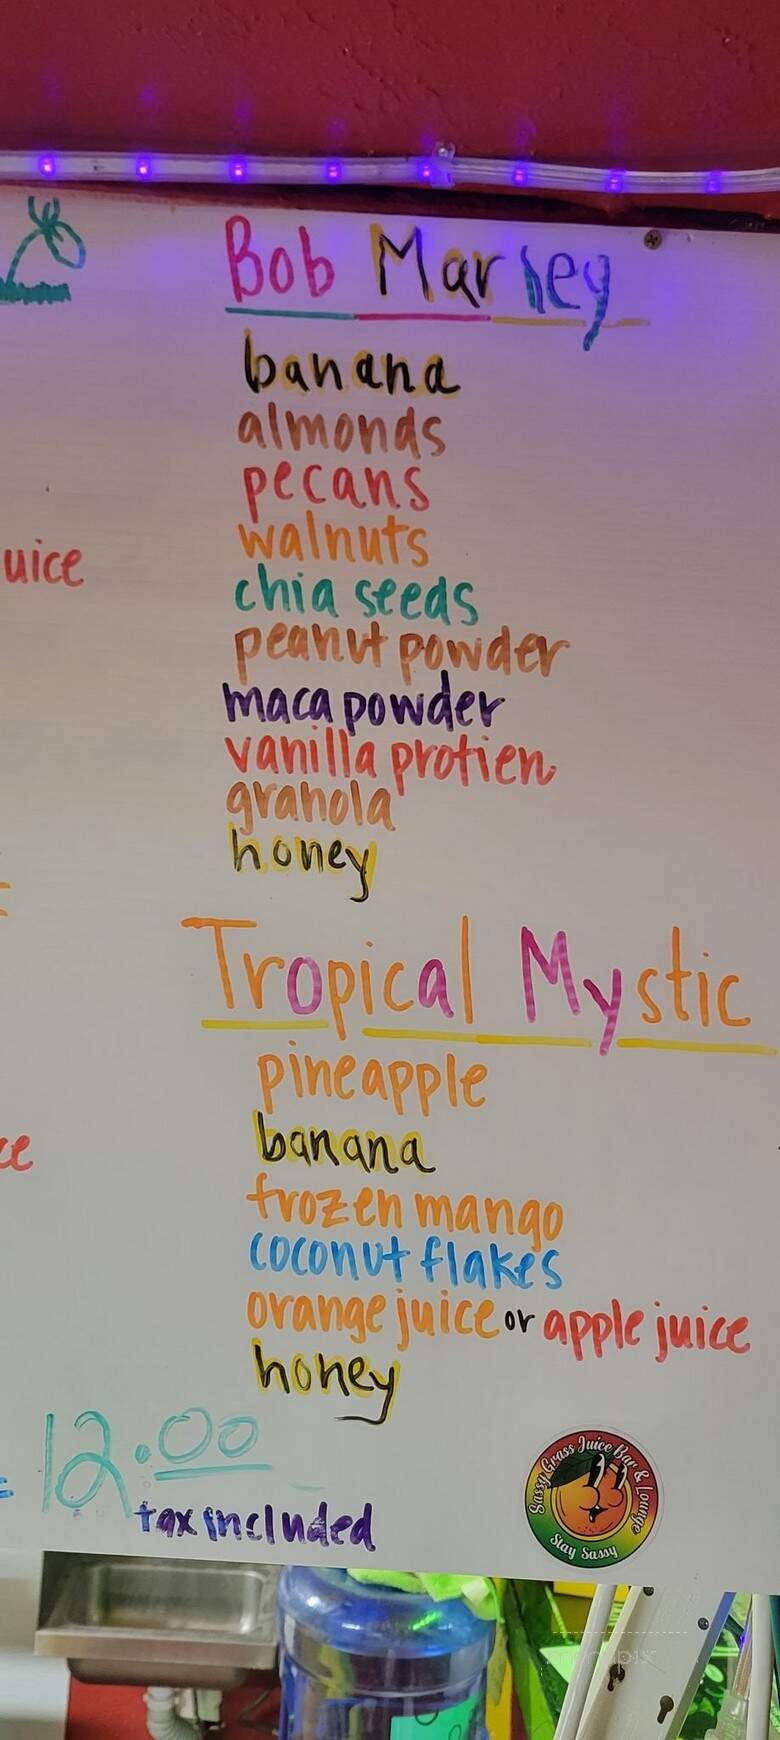 Bob Marley
banana
almonds
pecans
uice
walnuts
chia seeds
peanut powder
maca powder
vanilla protien
granola
honey
Tropical Mystic
pineapple
banana
ce
frozen mango
coconut flakes
orange juice or apple juice
honey
= 12.00
tax included
Sassy Grass Juice Bar & Lounge
Stay Sassy